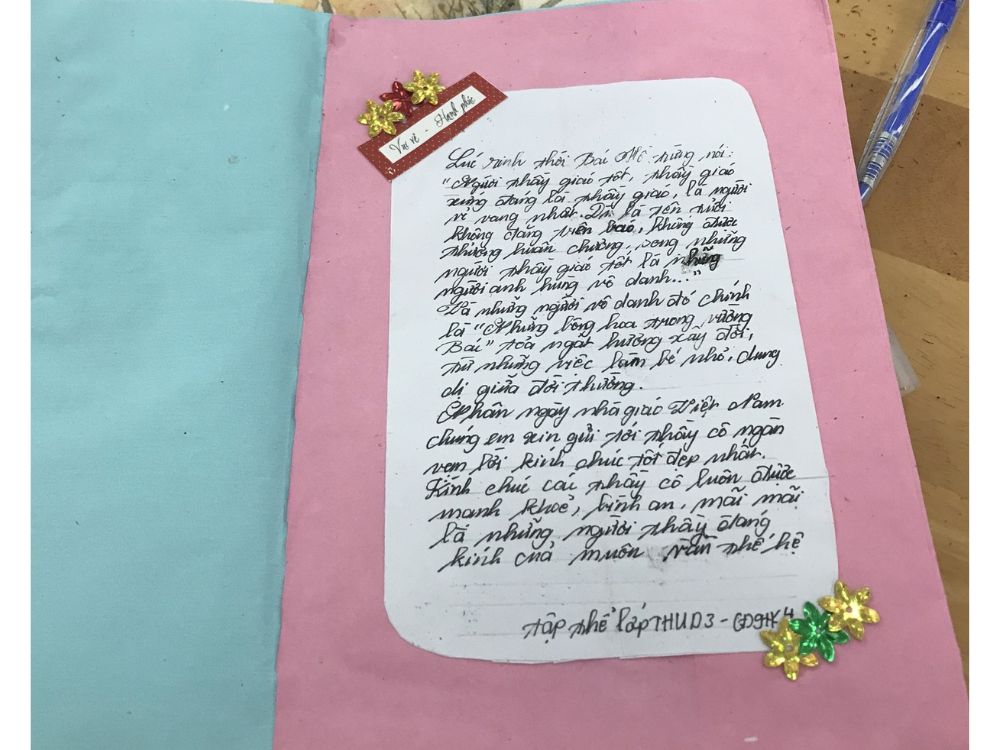 Vui vẻ - Hạnh phúc
Lúc sinh thời Bác Hồ từng nói:
"Người thầy giáo tốt, thầy giáo
xứng đáng là thầy giáo, là người
vẻ vang nhất. Dù là tên tuổi
không đăng trên báo, không được
thưởng huân chương, song những
người thầy giáo tốt là những
người anh hùng vô danh..."
Và những người vô danh đó chính
là "Những bông hoa trong vườn
Bác" toả ngát hương xây đời,
từ những việc làm bé nhỏ, dung
dị giữa đời thường.
Nhân ngày nhà giáo Việt Nam
chúng em xin gửi tới thầy cô ngàn
vạn lời kính chúc tốt đẹp nhất.
Kính chúc các thầy cô luôn được
mạnh khoẻ, bình an, mãi mãi
là những người thầy đáng
kính của muôn vàn thế hệ
Tập thể lớp THUD3 - CĐ9HK4